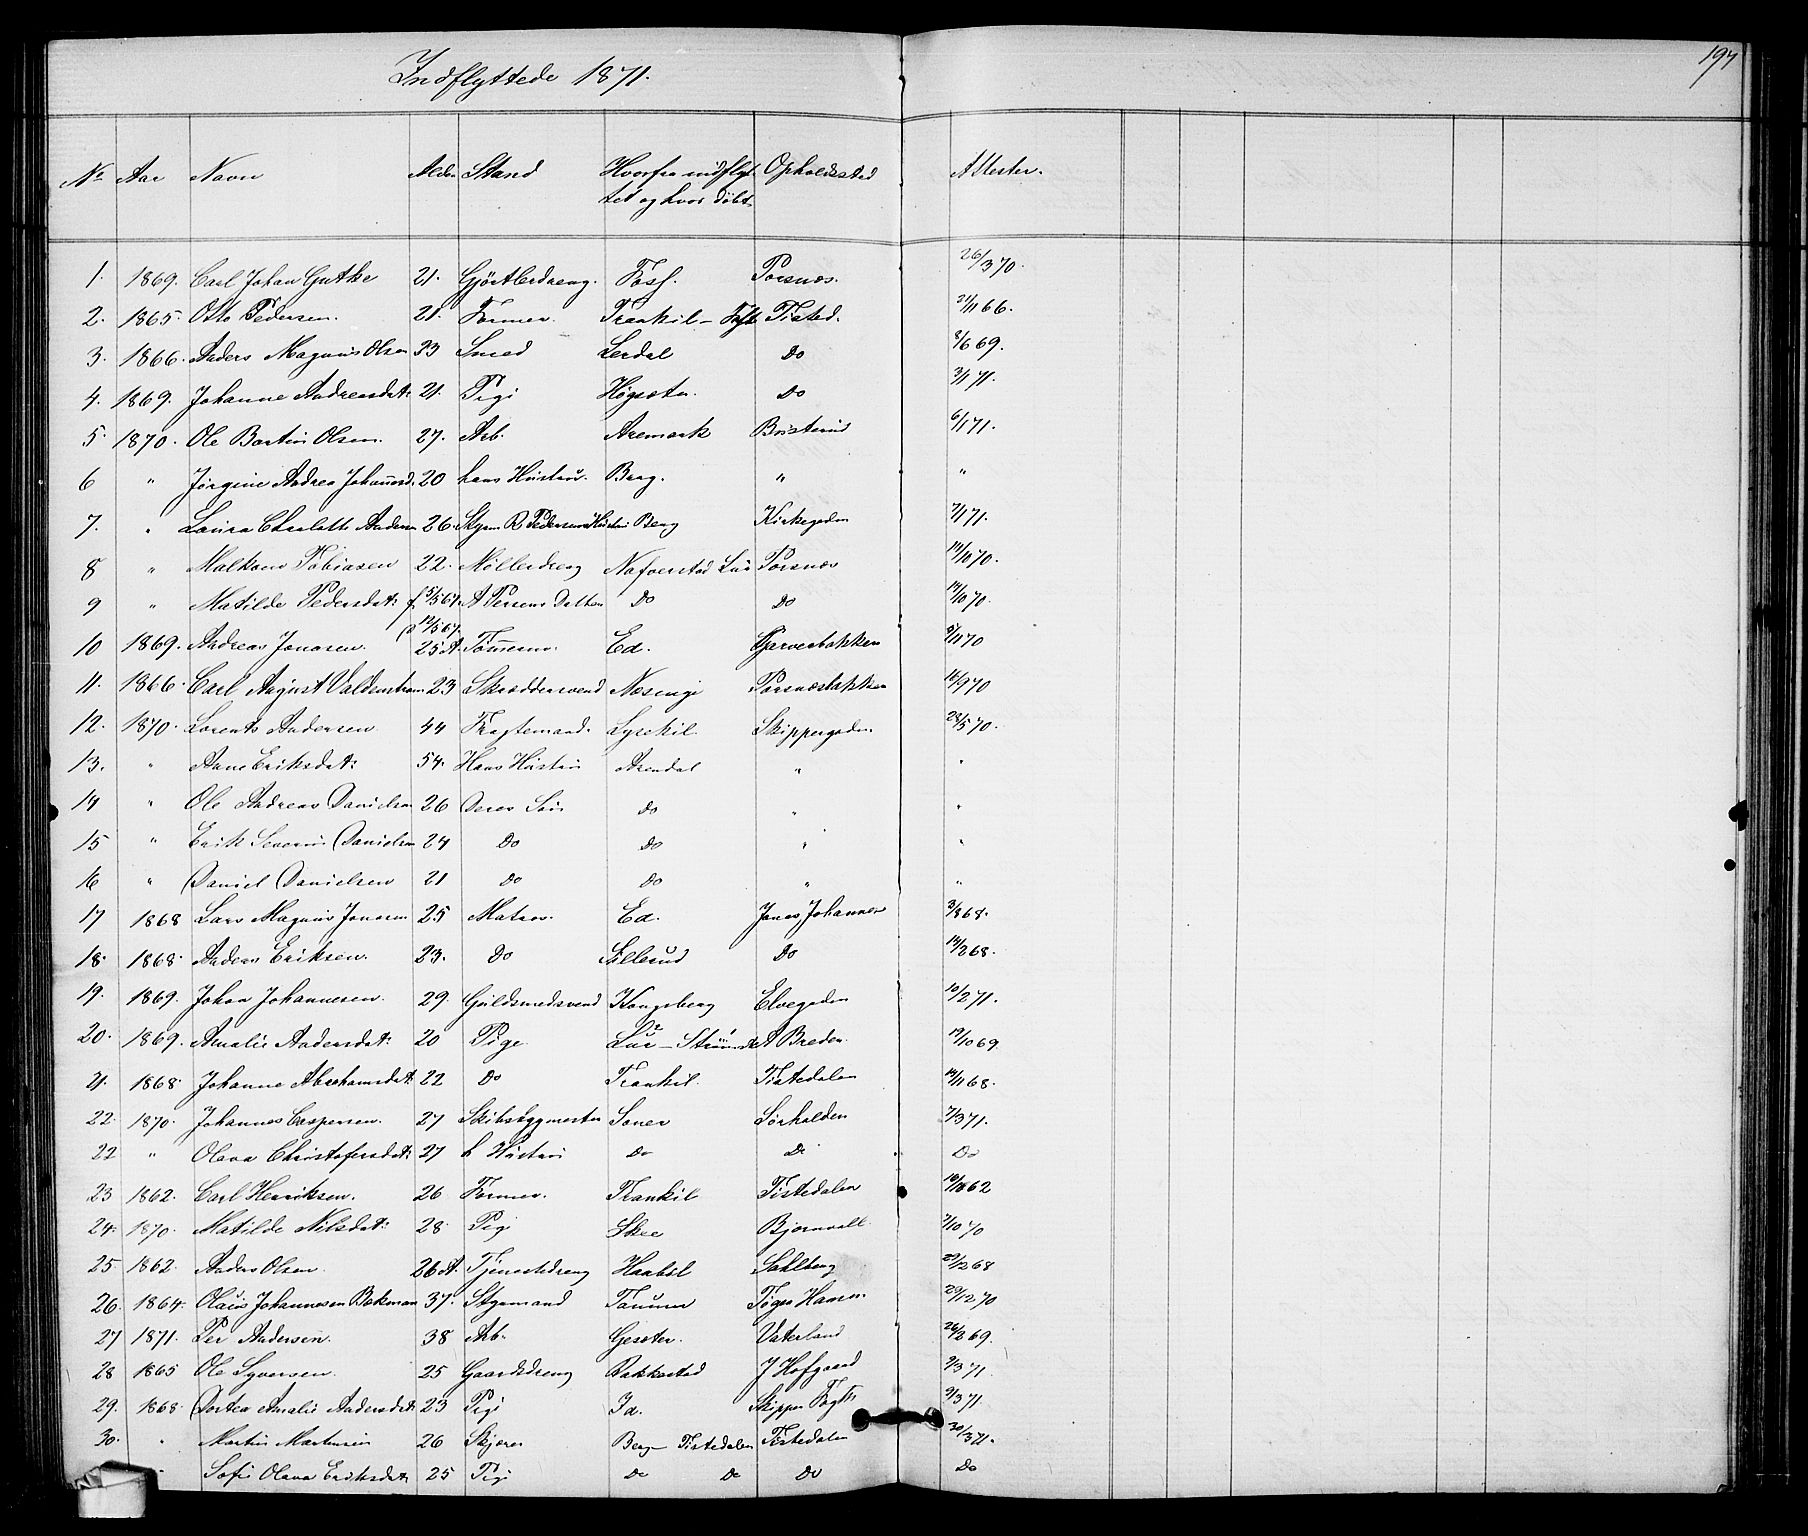 197
Indflyttede 1871.
No Aar Navn Alder Stand Hvorfra indflyt- Opholdssted Attester.
tet og hvor døbt.
1. 1869. Carl Johan Gutke 21. Gjørtlerdreng. Foss. Porsnæs. 26/3 70.
2. 1865. Otto Pedersen. 21. Former. Trankil - Tisted. 21/11 66.
3. 1866. Anders Magnus Olsen 33 Smed Lerdal Do 8/6 69.
4. 1869. Johanne Andreasdat: 21. Pige Høgsæter. Do 3/1 71.
5. 1870. Ole Bastin Olsen. 27. Arb. Aremark Bristerud 6/1 71.
6 " Jørgine Andrea Johannesd. 20 hans Hustru. Berg. " "
7. " Laura Charlotte Andersen 26. Stym R Pedersens Hustru Berg Kirkegaden 7/1 71.
8 " Malkom Tobiasen 22. Møllerdreng Nafverstad Lur Porsnæs 14/11 70.
9 " Matilde Pedersdat: f. 5/5 67. A Persens Datter Do Do 14/10 70.
D 12/5 67.
10 1869. Andreas Jonasen. 25 A. Tømmerm. Ed. Garverbakken 9/11 70
11. 1866. Carl August Valdenstrøm 23 Skræddersvend Nøsinge Porsnæsbakken 12/9 70
12. 1870. Lorents Andersen 44 Fragtemand Lysekil. Skippergaden 28/5 70.
13. " Anne Eriksdat: 54. Hans Hustru Arendal " "
14 " Ole Andreas Danielsen 26 Deres Søn Do " "
15 " Erik Severin Danielsen 24 Do Do " "
16 " Daniel Danielsen 21 Do Do " "
17 1868 Lars Magnus Jonasen 25 Matros. Ed. Jonas Johannes 3/8 68.
18. 1868. Anders Eriksen. 23. Do Sillerud Do 14/3 68.
19. 1869. Johan Johannesen. 29. Guldsmedsvend Kongsberg Elvegaden 10/2 71.
20. 1869. Amalie Andersdat: 20 Pige Lur - A Breden. 19/10 69.
21. 1868. Johanne Abrahamsdat: 22 Do Trankil. Tistedalen 14/11 68.
22. 1870. Johannes Caspersen. 27 Skibsbygmester Soner Sørhalden 7/3 71.
22 " Olava Christofersdat: 27 h Hustru Do Do Do
23 1862. Carl Henriksen. 26 Former. Trankil Tistedalen 10/11 62
24. 1870. Matilde Nilsdat: 28. Pige Skee Bjørnvall 7/10 70
25. 1862. Anders Olsen. 26 A. Tjenestedreng Haabøl Sahlberg 22/2 68
26. 1864. Olaus Johannesen Bækman 37. Styrmand Tanum Tøger Hansen 29/12 70
27 1871. Per Andersen. 38 Arb. Gesæter. Vaterland 26/3 69.
28 1865 Ole Syversen. 25 Gaardsdreng Rakkestad J Hofgaard 9/3 71.
29. 1868. Dortea Amalie Andersdat: 23 Pige Id. Skipper Fagth 9/3 71.
30. " Martin Martinsen 26 Skjærer Berg - Tistedalen Tistedalen 30/3 71.
" Sofie Olava Eriksdat: 25 Pige Do Do Do Do